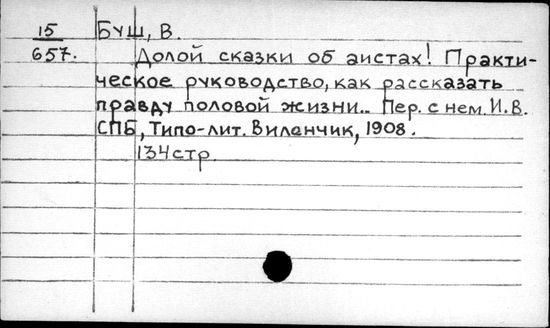 15 Буш, В.
657. Долой сказки об аистах! Практи-
ческое руководство, как рассказать
правду половой жизни.. Пер. с нем. И.В.
СПБ, Типо-лит. Виленчик, 1908.
134 стр.